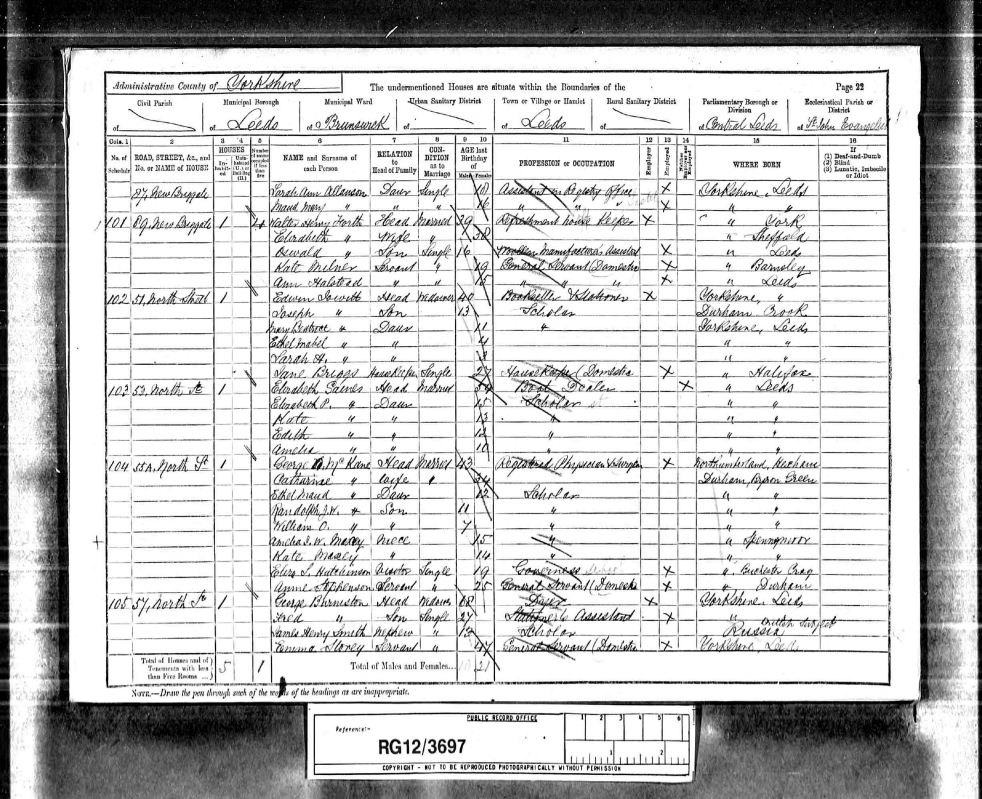 Administrative County of Yorkshire The undermentioned Houses are situate within the Boundaries of the Page 22
Civil Parish Municipal Borough Municipal Ward Urban Sanitary District Town or Village or Hamlet Rural Sanitary District Parliamentary Borough or Division Ecclesiastical Parish or District
of of Leeds of Brunswick of of Leeds of of Central Leeds of St. John Evangelist
Cols. 1 2 3 4 5 6 7 8 9 10 11 12 13 14 15 16
No. of Schedule ROAD, STREET, &c., and No. or NAME of HOUSE HOUSES NAME and Surname of each Person RELATION to Head of Family CONDITION as to Marriage AGE last Birthday of Males Females PROFESSION or OCCUPATION Employer Employed WHERE BORN (1) Deaf-and-Dumb (2) Blind (3) Lunatic, Imbecile or Idiot
87, New Briggate Sarah Ann Daur Single 18 Assistant in Registry Office X Yorkshire, Leeds
Maud Mary " " " 16 " " " X " "
101 89, New Briggate 1 4 Walter Henry Forth Head Married 39 Refreshment house Keeper X " York
Elizabeth " Wife " 38 " Sheffield
Oswald " Son Single 16 Woollen Manufacturers Assistant X " Leeds
Kate Milner Servant " 19 General Servant (Domestic X " Barnsley
Ann Halstead " " 15 " " " X " Leeds
102 51, North Street 1 Edwin Jowett Head Widower 40 Bookseller & Stationer X Yorkshire, "
Joseph " Son 13 Scholar Durham Crook
Mary Beatrice " Daur 11 " Yorkshire, Leeds
Ethel Mabel " " 4 " "
Sarah A. " " 2 " "
Jane Briggs Housekeeper Single 27 Housekeeper (Domestic X " Halifax
103 53, North St 1 Elizabeth Head Married Boot Dealer X " Leeds
Elizabeth P. " Daur 15 Scholar " "
Kate " " 13 " " "
Edith " " 12 " "
Amelia " " 10 " " "
104 55A, North St 1 George Mc Kane Head Married 43 Registered Physician & Surgeon X Northumberland, Hexham
Catharine " Wife " 34 Durham, Green
Ethel Maud " Daur 12 Scholar " "
Randolph J.W. " Son 11 " " "
William O. " " 7 " " "
Amelia J. W. Maxey Niece 15 " " Spennymoor
Kate Maxey " 14 " " "
Eliza S. Hutchinson Visitor Single 19 Governess X "
Annie Stephenson Servant " 25 General Servant (Domestic X " Durham
105 57, North St 1 George Burniston Head Widower Dyer X Yorkshire, Leeds
Fred " Son Single 27 Assistant X " "
James Henry Smith Nephew " 12 Scholar Russia British Subject
Emma Storey Servant " General Servant (Domestic X Yorkshire, Leeds
Total of Houses and of Tenements with less than Five Rooms 5 1 Total of Males and Females... 10 21
NOTE.—Draw the pen through such of the words of the headings as are inappropriate.
PUBLIC RECORD OFFICE 1 2 3 4 5 6
Reference:-
RG12/3697 1 2
COPYRIGHT - NOT TO BE REPRODUCED PHOTOGRAPHICALLY WITHOUT PERMISSION